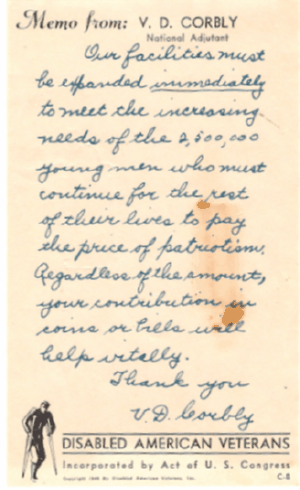 Memo from: V. D. CORBLY
National Adjutant
Our facilities must
be expanded immediately
to meet the increasing
needs of the 2,500,000
young men who must
continue for the rest
of their lives to pay
the price of patriotism.
Regardless of the amount,
your contribution in
coins or bills will
help vitally.
Thank you
V.D. Corbly
DISABLED AMERICAN VETERANS
Incorporated by Act of U. S. Congress
Disabled American Veterans, Inc.
C-8